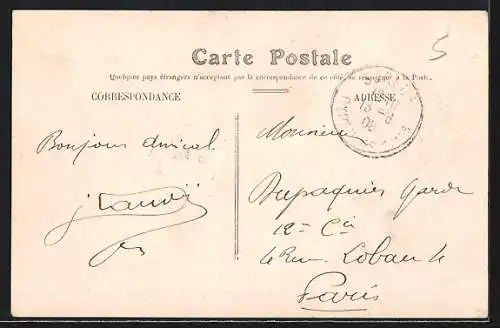 5
Carte Postale
Quelques pays étrangers n'acceptant pas la correspondance de ce côté, se renseigner à la Poste.
CORRESPONDANCE
ADRESSE
Bonjour amical
Monsieur
Garde
12e Cie
4 Rue Lobau 4
Paris